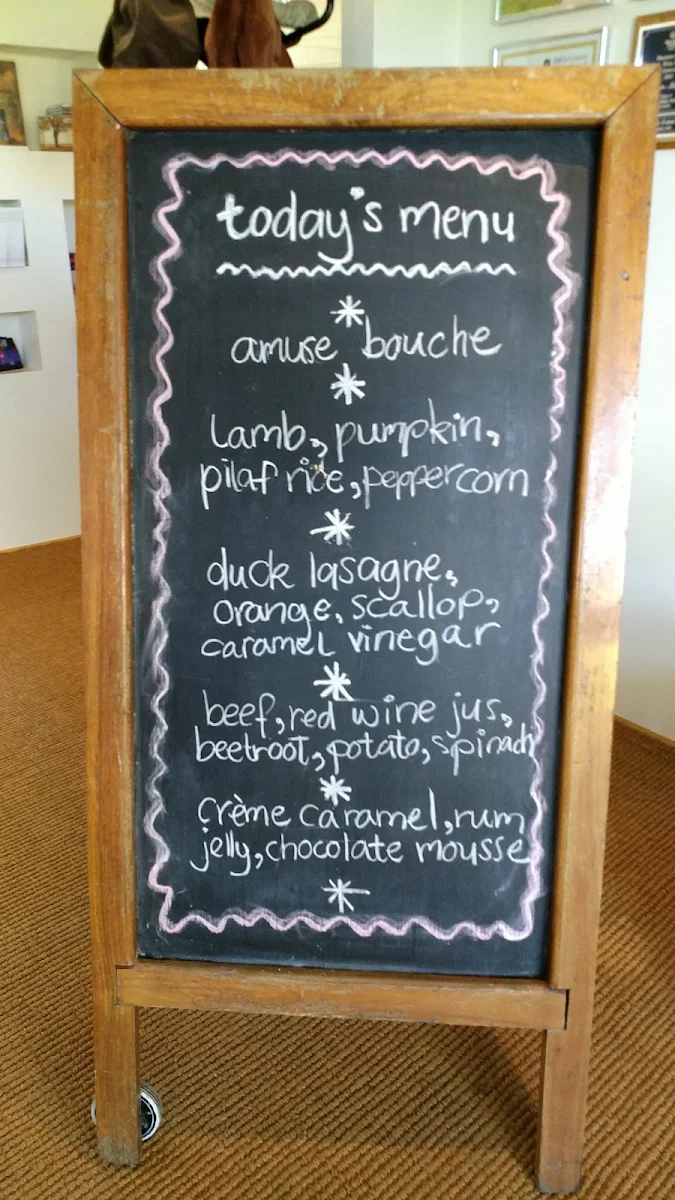 today's menu
amuse bouche
lamb, pumpkin,
pilaf rice, peppercorn
duck lasagne,
orange, scallop,
caramel vinegar
beef, red wine jus,
beetroot, potato, spinach
crème caramel, rum
jelly, chocolate mousse